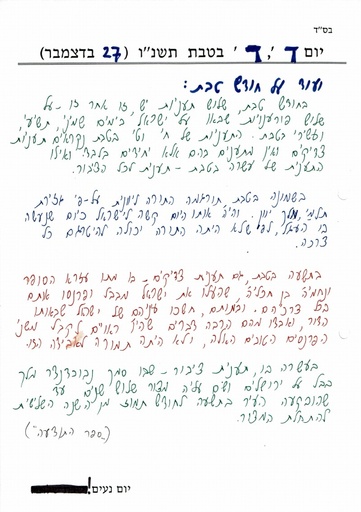 בס"ד
יום ד', ד' בטבת תשנ"ו (27 בדצמבר)
ועוד על חודש טבת:
בחודש טבת, שלוש תעניות יש זו אחר זו - על
שלוש פורענויות שבאו על ישראל בימים שמיני, תשיעי
ועשירי בטבת. התעניות של ח' וט' בטבת נקראים תענית
צדיקים ואין מתענים בהם אלא יחידים בלבד ואילו
התענית של עשרה בטבת - תענית לכל הצבור.
בשמונה בטבת תורגמה התורה ליוונית על-פי גזירת
תלמי, מלך יוון. והיה אותו היום קשה לישראל כיום שנעשה
בו העגל, לפי שלא היתה התורה יכולה להיתרגם כל
צרכה.
בתשעה בטבת, גם תענית צדיקים - בו מתו עזרא הסופר
ונחמיה בן חכליה, שהעלו את ישראל מבבל ופרנסו אותם
בכל צרכיהם. ובמותם, חשכו עיניהם של ישראל שבאותו
הדור, ואבדו מהם הרבה דברים שהיו ראויים לקבל משני
הפרנסים הטובים האלה, ולא היתה תמורה לאבידה הזו
בעשרה בו, תענית ציבור - שבו סמך נבוכדנצר מלך
בבל על ירושלים ושם עליה מצור שלוש שנים עד
שהובקעה העיר בתשעה לחודש תמוז מן השנה השלישית
להתחלת המצור.
(ספר התודעה)
יום נעים!